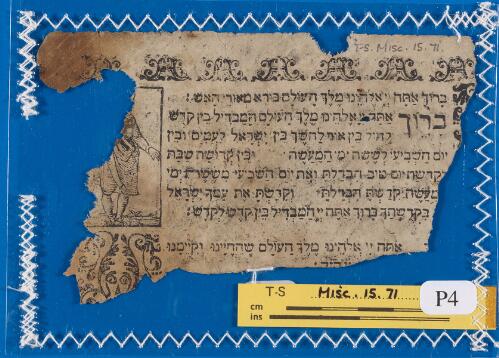 T-S. Misc. 15. 71.
בָּרוּךְ אַתָּה יְיָ אֱלֹהֵינוּ מֶלֶךְ הָעוֹלָם בּוֹרֵא מְאוֹרֵי הָאֵשׁ:
ברוך אַתָּה יְיָ אֱלֹהֵינוּ מֶלֶךְ הָעוֹלָם הַמַּבְדִּיל בֵּין קֹדֶשׁ
לְחוֹל בֵּין אוֹר לְחֹשֶׁךְ בֵּין יִשְׂרָאֵל לָעַמִּים וּבֵין
יוֹם הַשְּׁבִיעִי לְשֵׁשֶׁת יְמֵי הַמַּעֲשֶׂה בֵּין קְדוּשַּׁת שַׁבָּת
לִקְדֻשַּׁת יוֹם טוֹב הִבְדַּלְתָּ וְאֶת יוֹם הַשְּׁבִיעִי מִשֵּׁשֶׁת יְמֵי
מַעֲשֶׂה קִדַּשְׁתָּ הִבְדַּלְתָּ וְקִדַּשְׁתָּ אֶת עַמְּךָ יִשְׂרָאֵל
בִּקְדֻשָּׁתֶךָ בָּרוּךְ אַתָּה יְיָ הַמַּבְדִּיל בֵּין קֹדֶשׁ לְקֹדֶשׁ:
אַתָּה יְיָ אֱלֹהֵינוּ מֶלֶךְ הָעוֹלָם שֶׁהֶחֱיָינוּ וְקִיְּמָנוּ
T-S Misc. 15. 71 P4
cm
ins